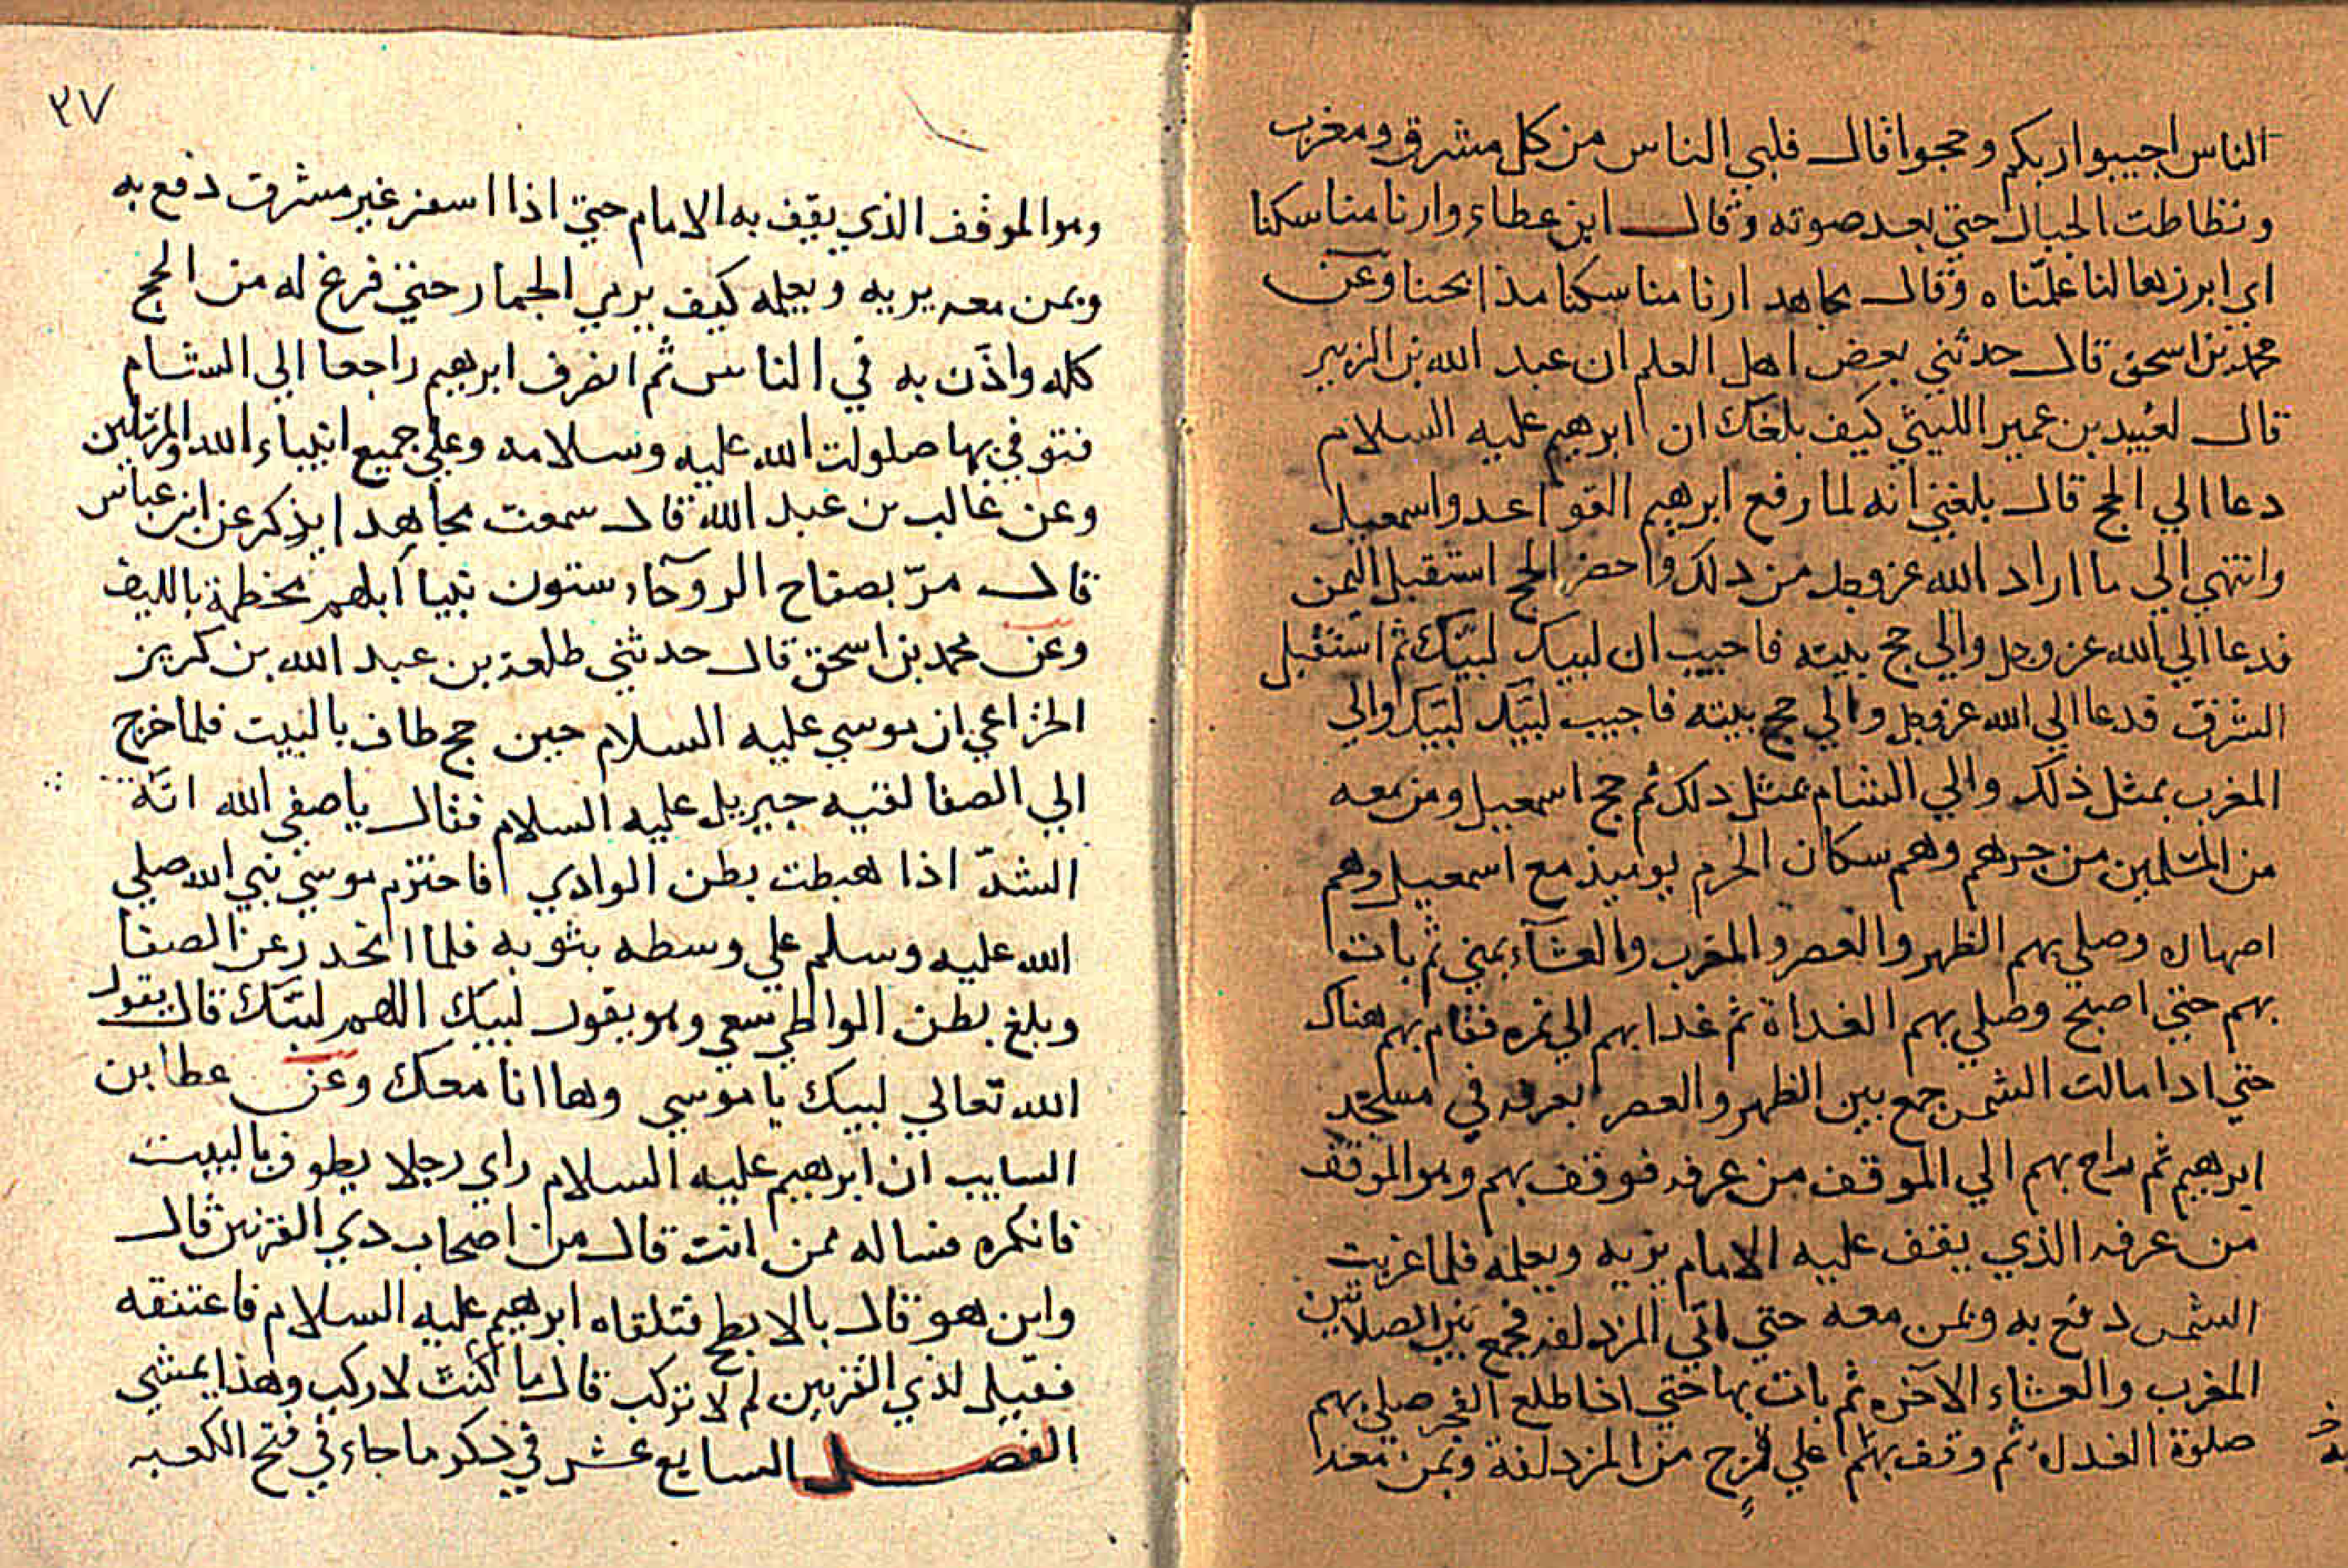 الناس اجيبوا ربكم وحجوا قال فلبي الناس من كل مشرق ومغرب
وتطاطت الجبال حتي بعد صوته وقال ابن عطاء وارنا مناسكنا
اي ابرزها لنا علمناه وقال مجاهد ارنا مناسكنا مذابحنا وعن
محمد بن اسحق قال حدثني بعض اهل العلم ان عبد الله بن الزبير
قال لعبيد بن عمير الليثي كيف بلغك ان ابرهيم عليه السلام
دعا الي الحج قال بلغني انه لما رفع ابرهيم القواعد واسمعيل
وانتهي الي ما اراد الله عز وجل من دلك واحضر الحج استقبل اليمن
فدعا الي الله عز وجل والي حج بيته فاجيب ان لبيك لبيك ثم استقبل
الشرق فدعا الي الله عز وجل والي حج بيته فاجيب لبيك لبيك والي
المغرب بمثل ذلك والي الشام بمثل دلك ثم حج اسمعيل ومن معه
من المسلمين من جرهم وهم سكان الحرم يوميذ مع اسمعيل وهم
اصهاره وصلي بهم الظهر والعصر والمغرب والعشآء بمني ثم بات
بهم حتي اصبح وصلي بهم الغداة ثم غدا بهم الي نمره فقام بهم هناك
حتي ادا مالت الشمس جمع بين الظهر والعصر بعرفه في مسجد
ابرهيم ثم راح بهم الي الموقف من عرفه فوقف بهم وهو الموقف
من عرفه الذي يقف عليه الامام يريه ويعلمه فلما غربت
الشمس دفع به وبمن معه حتي اتي المزدلفه فجمع بين الصلاتين
المغرب والعشاء الآخره ثم بات بها حتي اذا طلع الفجر صلي بهم
صلوة الغداه ثم وقف بهم علي قزح من المزدلفة وبمن معه
٢٧
وهو الموقف الذي يقف به الامام حتي اذا اسفر غير مشرق دفع به
وبمن معه يريه ويعلمه كيف يرمي الجمار حتي فرغ له من الحج
كله واذن به في الناس ثم انصرف ابرهيم راجعا الي الشام
فتوفي بها صلوات الله عليه وسلامه وعلي جميع انبياء الله والمرسلين
وعن غالب بن عبد الله قال سمعت مجاهدا يذكر عن ابن عباس
قال مرّ بصفاح الروحآء ستون نبيا ابلهم مخطمة بالليف
وعن محمد بن اسحق قال حدثني طلحة بن عبد الله بن كريز
الخزاعي ان موسي عليه السلام حين حج طاف بالبيت فلما خرج
الي الصفا لقيه جبريل عليه السلام فقال يا صفي الله انه
الشدّ اذا هبطت بطن الوادي فاحتزم موسي نبي الله صلي
الله عليه وسلم علي وسطه بثوبه فلما انحدر عن الصفا
وبلغ بطن الوادي سعي وهو يقول لبيك اللهم لبيك قال يقول
الله تعالي لبيك يا موسي وها انا معك وعن عطا بن
السايب ان ابرهيم عليه السلام راي رجلا يطوف بالبيت
فانكره فساله ممن انت قال من اصحاب دي القرنين قال
واين هو قال بالابطح فتلقاه ابرهيم عليه السلام فاعتنقه
فقيل لذي القرنين لم لا تركب قال ما كنت لاركب وهذا يمشي
الفصل السابع عشر في ذكر ما جاء في فتح الكعبه